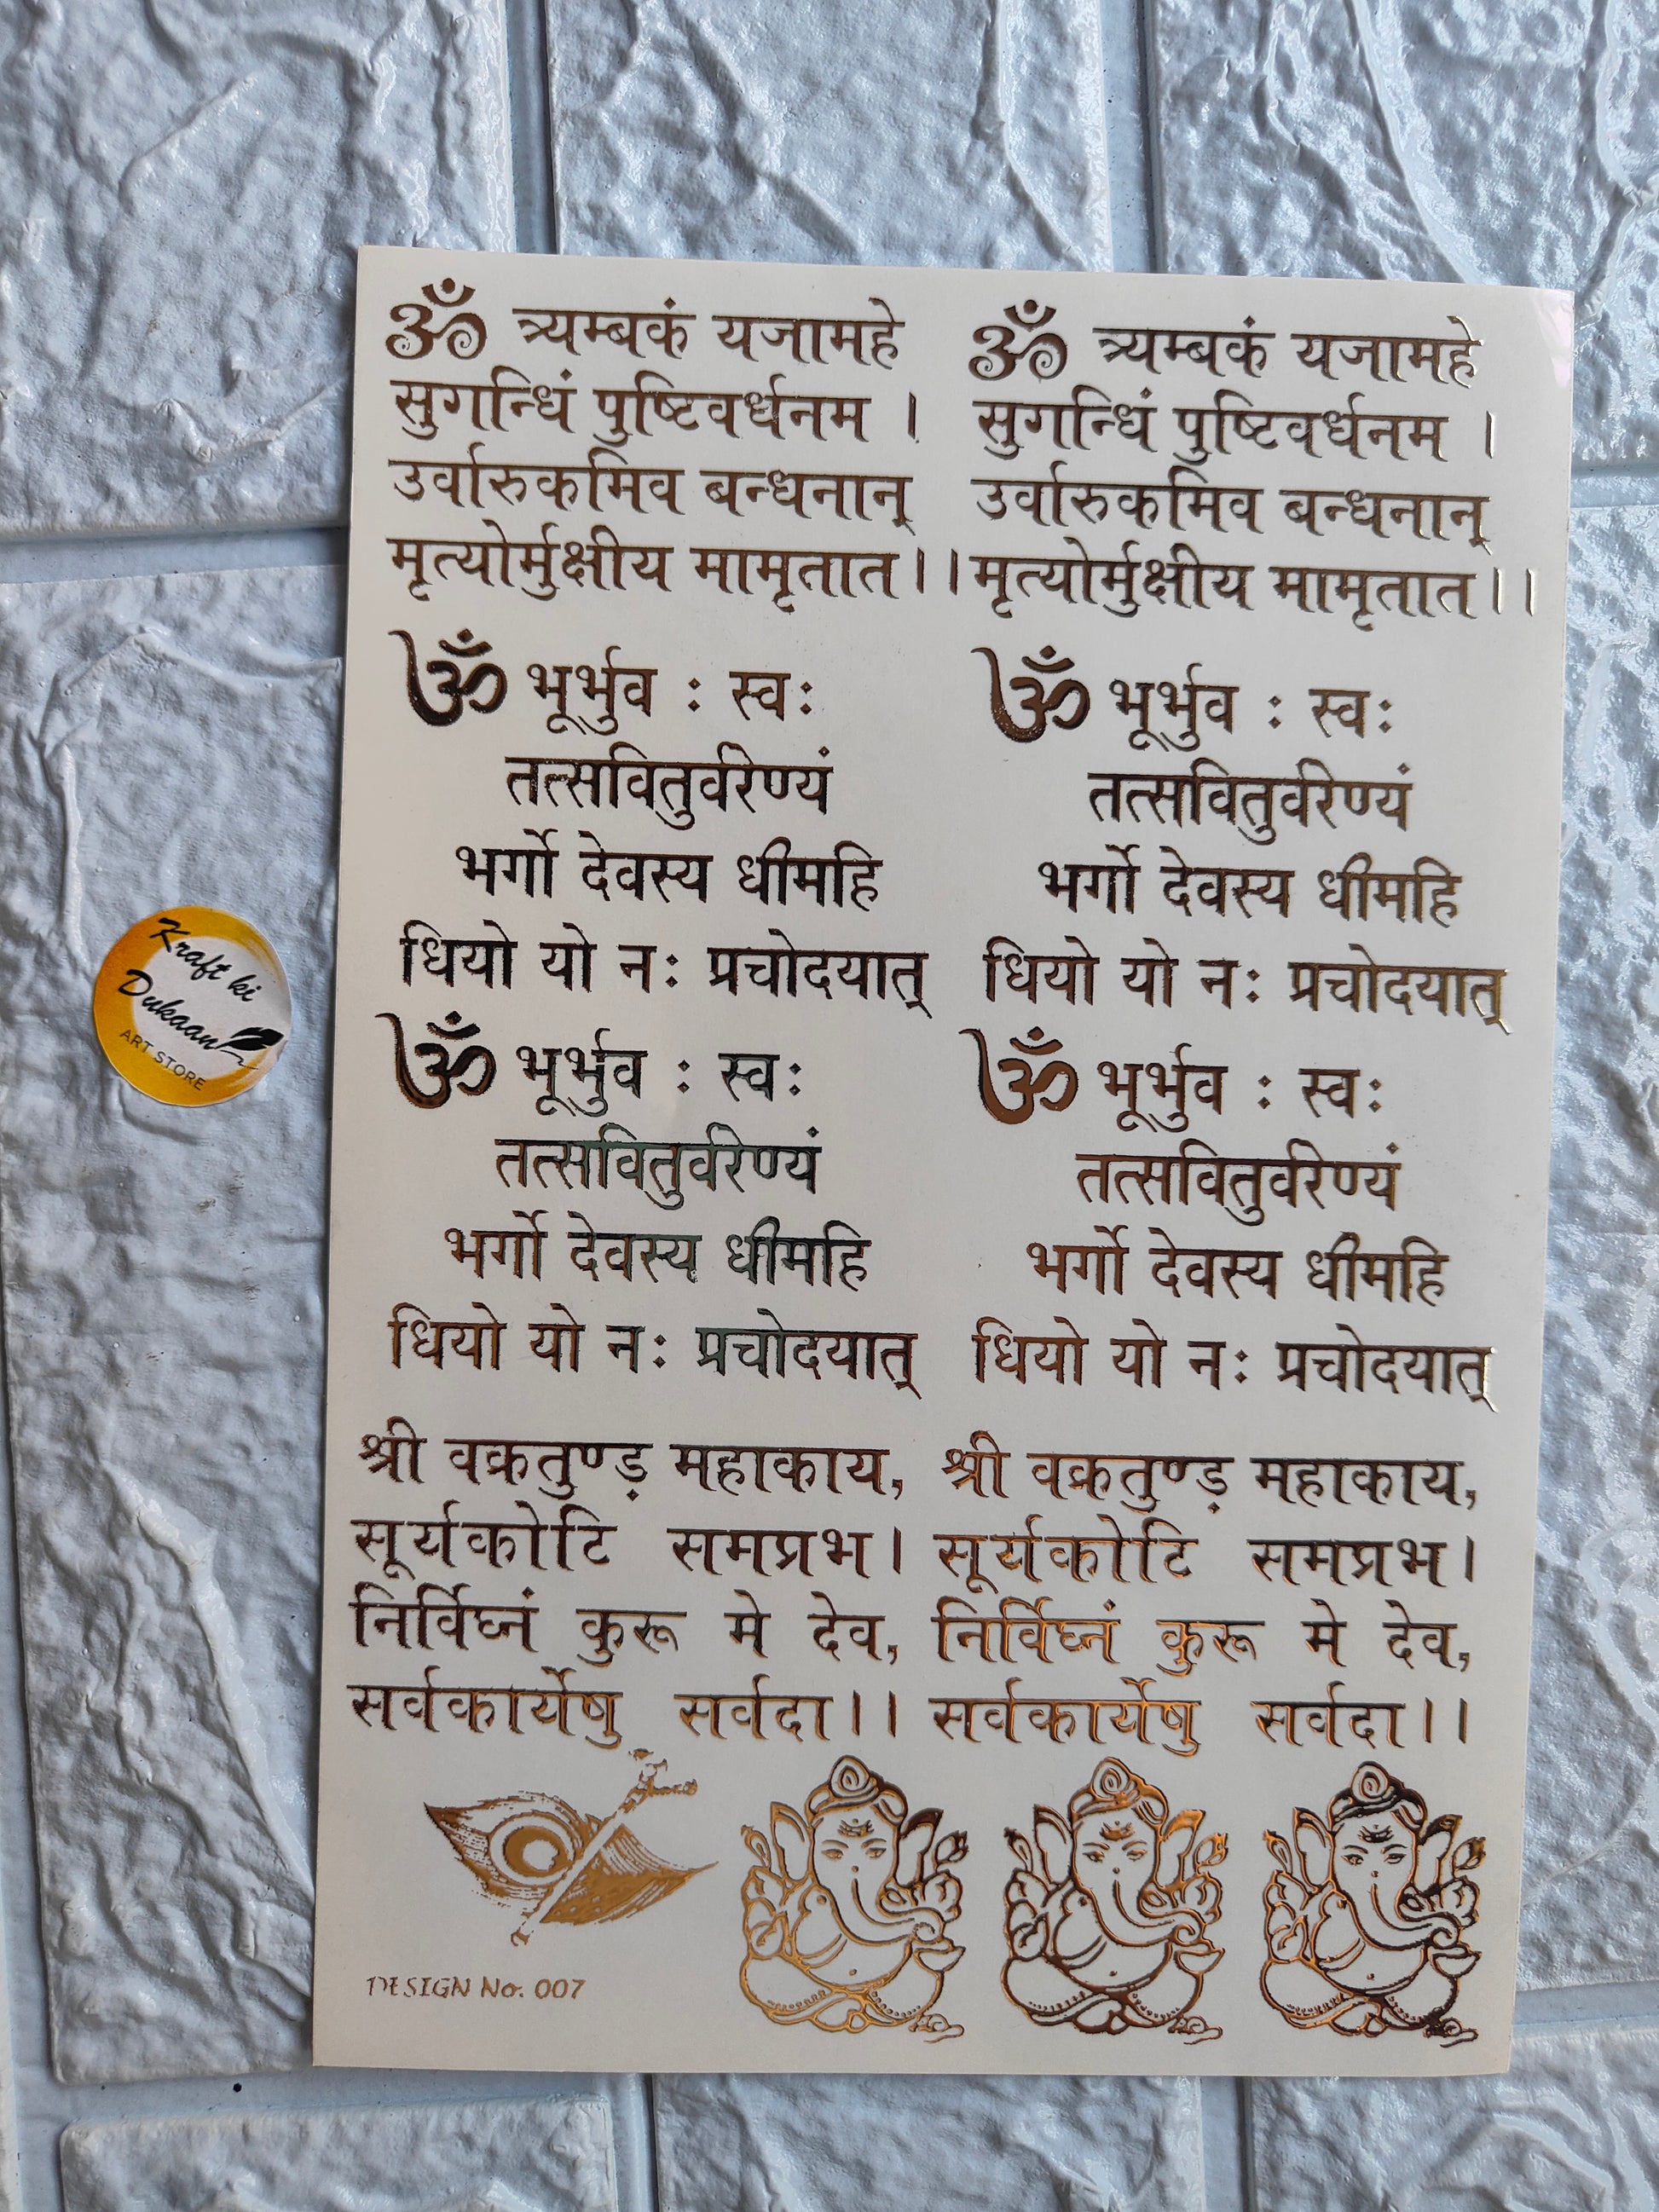 ॐ त्र्यम्बकं यजामहे
सुगन्धिं पुष्टिवर्धनम ।
उर्वारुकमिव बन्धनान्
मृत्योर्मुक्षीय मामृतात।।
ॐ त्र्यम्बकं यजामहे
सुगन्धिं पुष्टिवर्धनम ।
उर्वारुकमिव बन्धनान्
मृत्योर्मुक्षीय मामृतात।।
ॐ भूर्भुव : स्वः
तत्सवितुर्वरेण्यं
भर्गो देवस्य धीमहि
धियो यो नः प्रचोदयात्
ॐ भूर्भुव : स्वः
तत्सवितुर्वरेण्यं
भर्गो देवस्य धीमहि
धियो यो नः प्रचोदयात्
Kraft ki
Dukaan
ART STORE
ॐ भूर्भुव : स्वः
तत्सवितुर्वरेण्यं
भर्गो देवस्य धीमहि
धियो यो नः प्रचोदयात्
ॐ भूर्भुव : स्वः
तत्सवितुर्वरेण्यं
भर्गो देवस्य धीमहि
धियो यो नः प्रचोदयात्
श्री वक्रतुण्ड़ महाकाय,
सूर्यकोटि समप्रभ।
निर्विघ्नं कुरू मे देव,
सर्वकार्येषु सर्वदा।।
श्री वक्रतुण्ड़ महाकाय,
सूर्यकोटि समप्रभ।
निर्विघ्नं कुरू मे देव,
सर्वकार्येषु सर्वदा।।
DESIGN No. 007